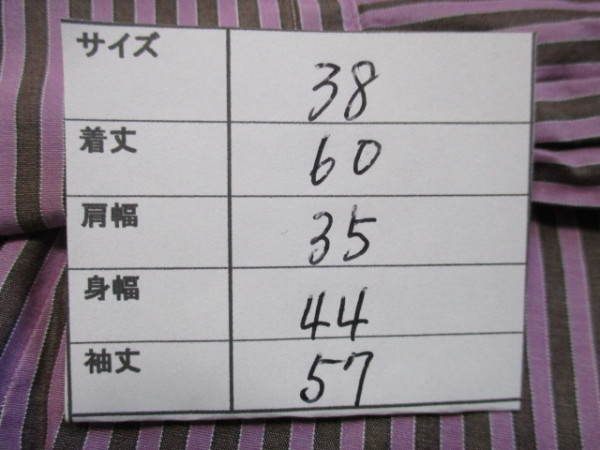 サイズ 38
着丈 60
肩幅 35
身幅 44
袖丈 57